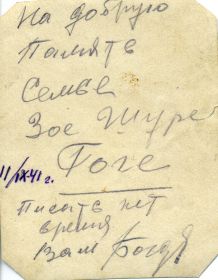 На добрую
Память
Семье
Зое Шуре
Гоге
11/IX 41 г.
Писать нет
время
Вам